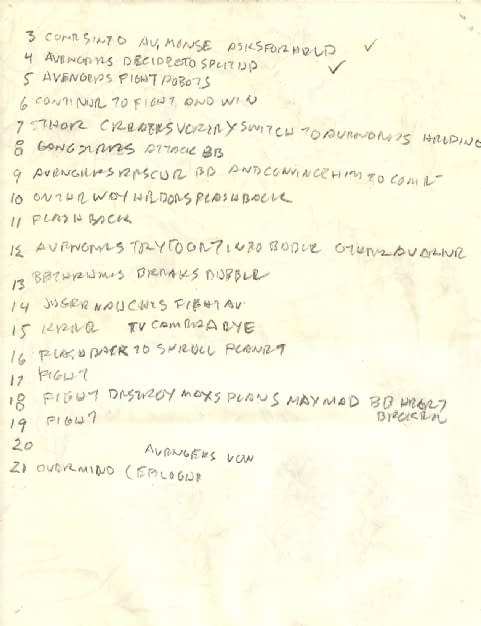 3 COMES INTO AV. MONSE ASKS FOR HELP ✓
4 AVENGERS DECIDE TO SPLIT UP ✓
5 AVENGERS FIGHT ROBOTS
6 CONTINUE TO FIGHT AND WIN
7 THOR CREATES SWITCH TO AVENGERS
8 ATTACK BB
9 AVENGERS RESCUE BB AND CONVINCE HIM TO COME
10 ON THE WAY HE DOES FLASHBACK
11 FLASHBACK
12 AVENGERS TRY TO GET INTO
13 BREAKS BUBBLE
14 FIGHT AV
15 TV CAMERA EYE
16 FLASHBACK TO SKROLL PLANET
17 FIGHT
18 FIGHT DESTROY MAXS PLANS MAX MAD BB
19 FIGHT
20 AVENGERS
21 OVERMIND (EPILOGUE)